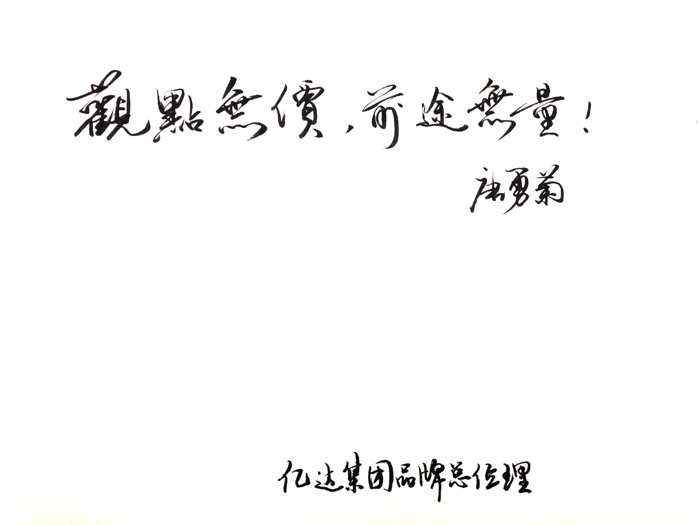 觀點無價，前途無量！
唐勇菊
亿达集团品牌总经理